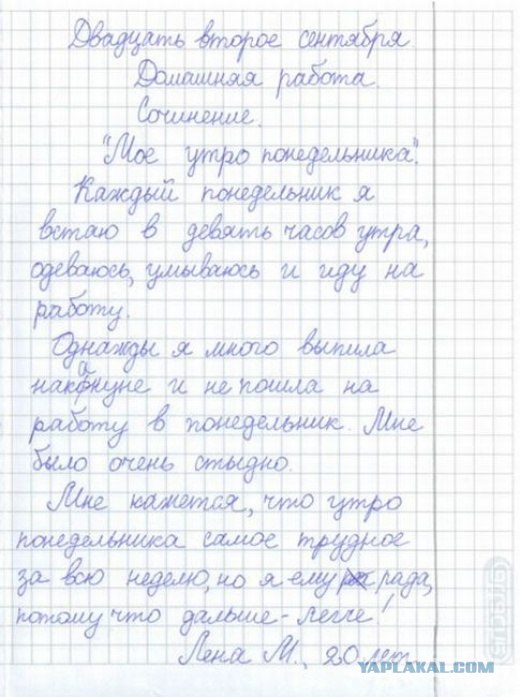 Двадцать второе сентября.
Домашняя работа.
Сочинение.
"Мое утро понедельника".
Каждый понедельник я
встаю в девять часов утра,
одеваюсь, умываюсь и иду на
работу.
Однажды я много выпила
накануне и не пошла на
работу в понедельник. Мне
было очень стыдно.
Мне кажется, что утро
понедельника самое трудное
за всю неделю, но я ему рада,
потому что дальше - легче!
Лена М., 20 лет.
YAPLAKAL.COM